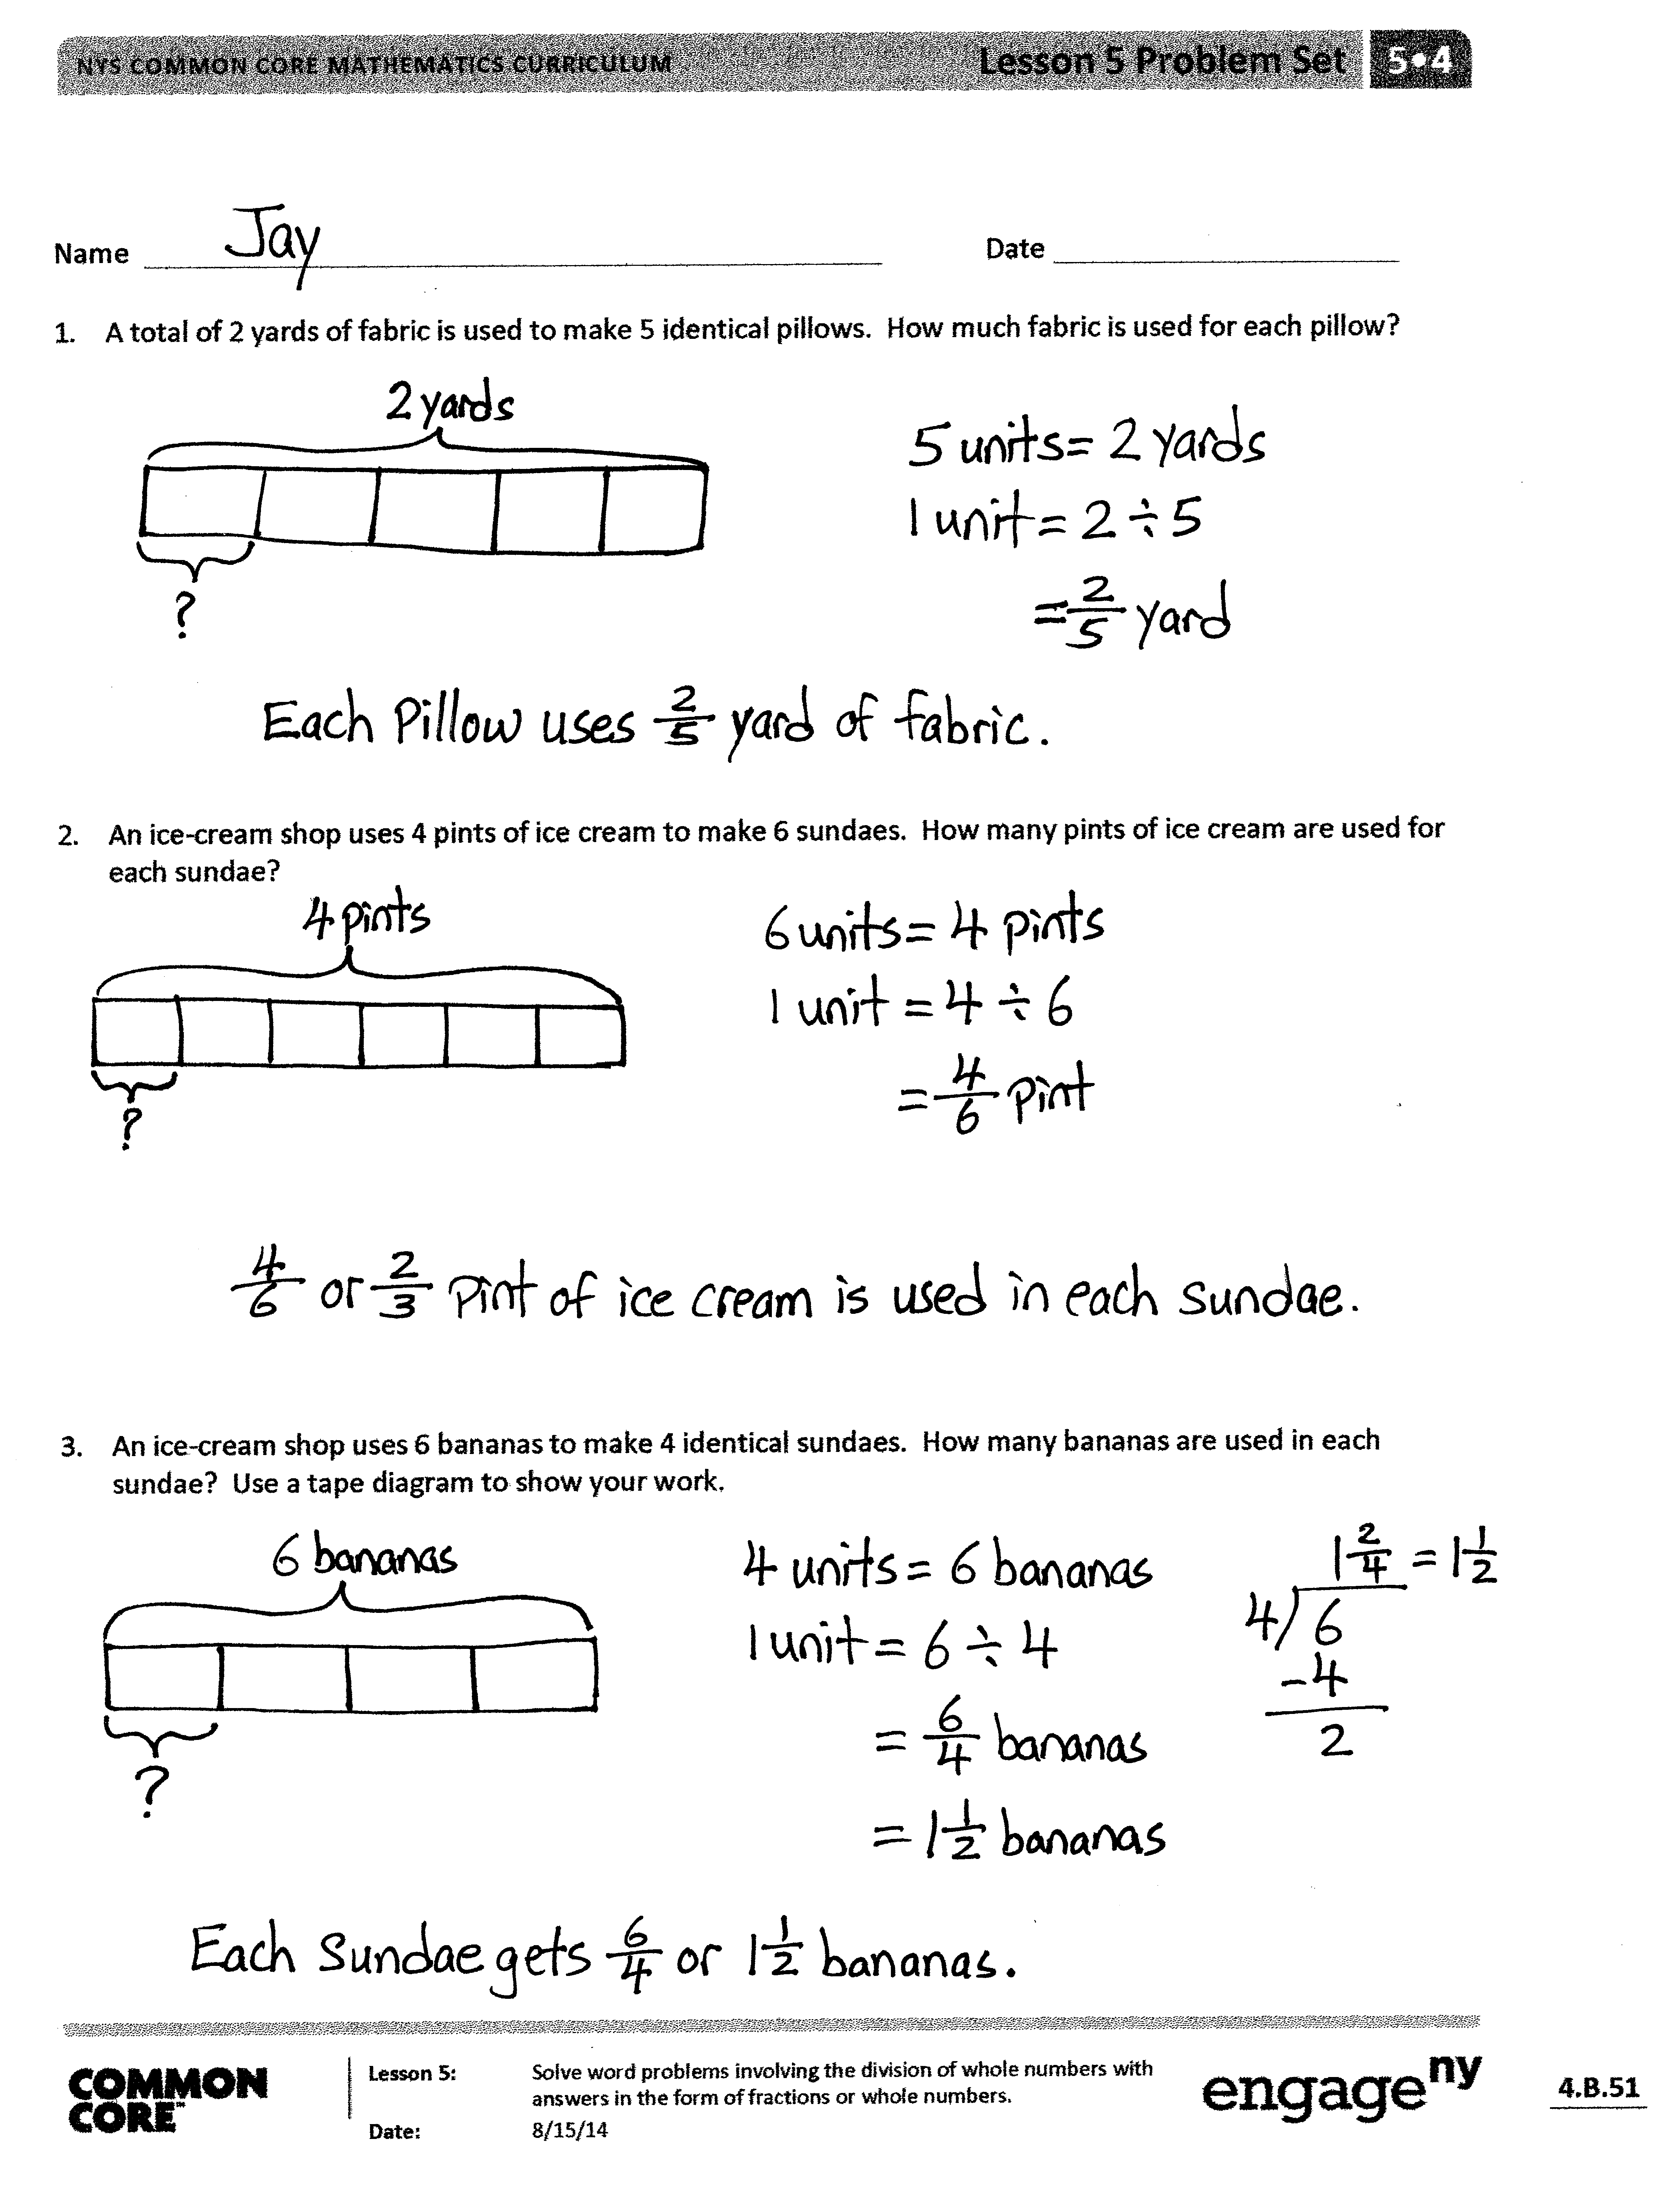 NYS COMMON CORE MATHEMATICS CURRICULUM Lesson 5 Problem Set 5•4
Name Jay Date
1. A total of 2 yards of fabric is used to make 5 identical pillows. How much fabric is used for each pillow?
2 yards
5 units = 2 yards
1 unit = 2 ÷ 5
= 2/5 yard
?
Each Pillow uses 2/5 yard of fabric.
2. An ice-cream shop uses 4 pints of ice cream to make 6 sundaes. How many pints of ice cream are used for
each sundae?
4 pints
6 units = 4 pints
1 unit = 4 ÷ 6
= 4/6 pint
?
4/6 or 2/3 pint of ice cream is used in each sundae.
3. An ice-cream shop uses 6 bananas to make 4 identical sundaes. How many bananas are used in each
sundae? Use a tape diagram to show your work.
6 bananas
?
4 units = 6 bananas
1 unit = 6 ÷ 4
= 6/4 bananas
= 1 1/2 bananas
1 2/4 = 1 1/2
4)6
-4
2
Each Sundae gets 6/4 or 1 1/2 bananas.
COMMON
CORE™
Lesson 5: Solve word problems involving the division of whole numbers with
answers in the form of fractions or whole numbers.
Date: 8/15/14
engageny
4.B.51